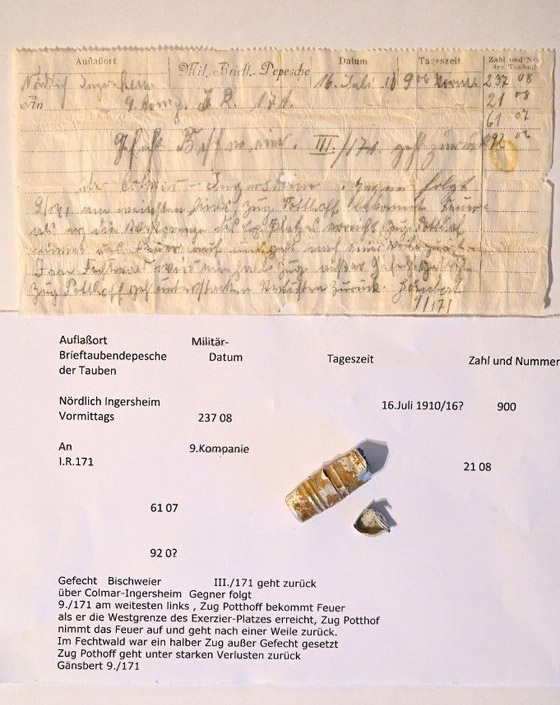 Auflaßort Mil. Brieft. Depesche Datum Tageszeit Zahl und
der Tauben
Nördlich Ingersheim 16. Juli 10 9 00 Vorm. 237 08
An 9. Komp. I. R. 171. 21 08
61 07
III./171 geht zurück
Colmar - Ingersheim. Gegner folgt
9/171 am weitesten links, Zug Potthoff bekommt Feuer
als er die Westgrenze des Ex. Platzes erreicht, Zug Potthof
nimmt das Feuer auf
Zug Potthoff geht unter starken Verlusten zurück.
9/171
Auflaßort Militär-
Brieftaubendepesche Datum Tageszeit Zahl und Nummer
der Tauben
Nördlich Ingersheim 16.Juli 1910/16? 900
Vormittags 237 08
An 9.Kompanie
I.R.171 21 08
61 07
92 0?
Gefecht Bischweier III./171 geht zurück
über Colmar-Ingersheim Gegner folgt
9./171 am weitesten links , Zug Potthoff bekommt Feuer
als er die Westgrenze des Exerzier-Platzes erreicht, Zug Potthof
nimmt das Feuer auf und geht nach einer Weile zurück.
Im Fechtwald war ein halber Zug außer Gefecht gesetzt
Zug Pothoff geht unter starken Verlusten zurück
Gänsbert 9./171